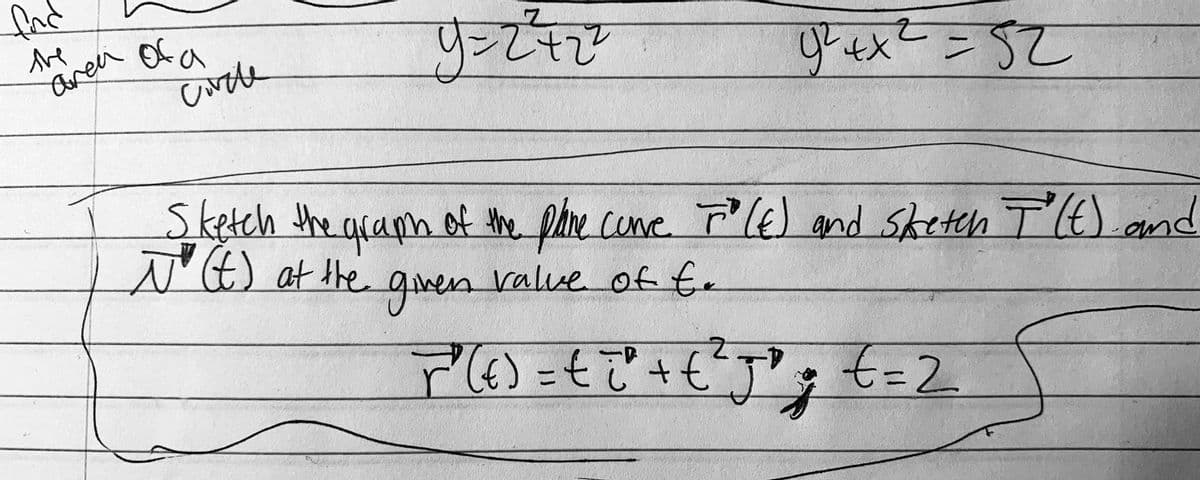 find
the
area of a
circle
y=2²+2²
y²+x²=52
Sketch the graph of the plane curve r⃗(t) and sketch T⃗(t) and
N⃗(t) at the given value of t.
r⃗(t)=t i⃗+t² j⃗; t=2